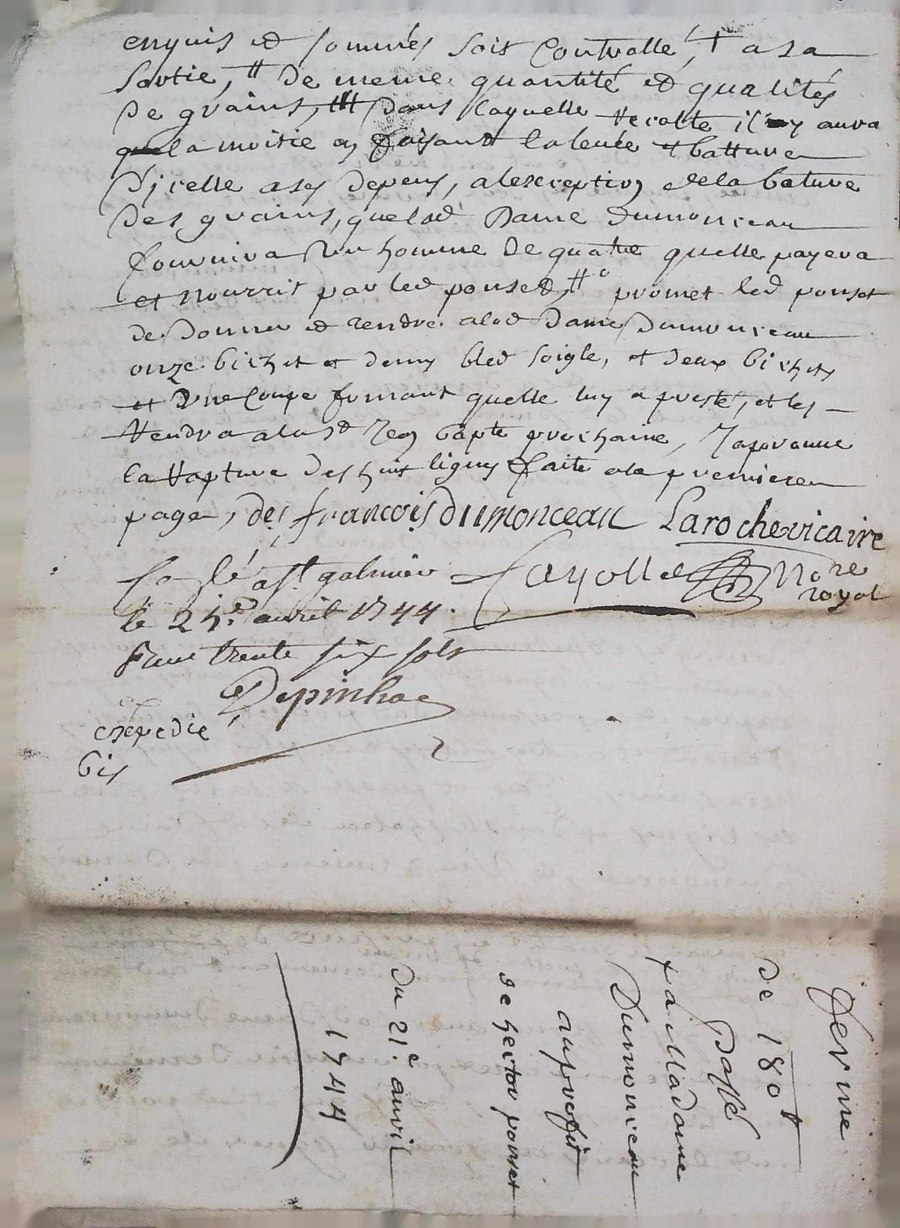 enquis et sommés soit Controllé, + a sa
sortie, # de meme quantité et qualités
De grains, ## Dans laquelle Recolte il y aura
la moitie en faisant la levée et batture
D'icelle a ses depens, a lexception de la bature
Des grains, que lad Dame Dumonceau
fournira un homme de quatre quelle payera
et nourrit par led ponset, #o promet led ponset
de Donner et rendre a lad Dame Dumonceau
onze bichet et demy bled soigle, et deux bichets
et une Coupe fromant quelle luy a presté, et les
Rendra a la st Jean bapte prochaine, Japrouvue
la Rapture des huit lignes faite a la premiere
page, des francois dumonceau Larochevicaire
a st galmier Fayolle Nore royal
le 21e avril 1744.
trente six sols
Depinhac
expedie
bis
ferme
De 180#
Passé
par Madame
Dumonceau
au profit
de hector ponset
Du 21e avril
1744